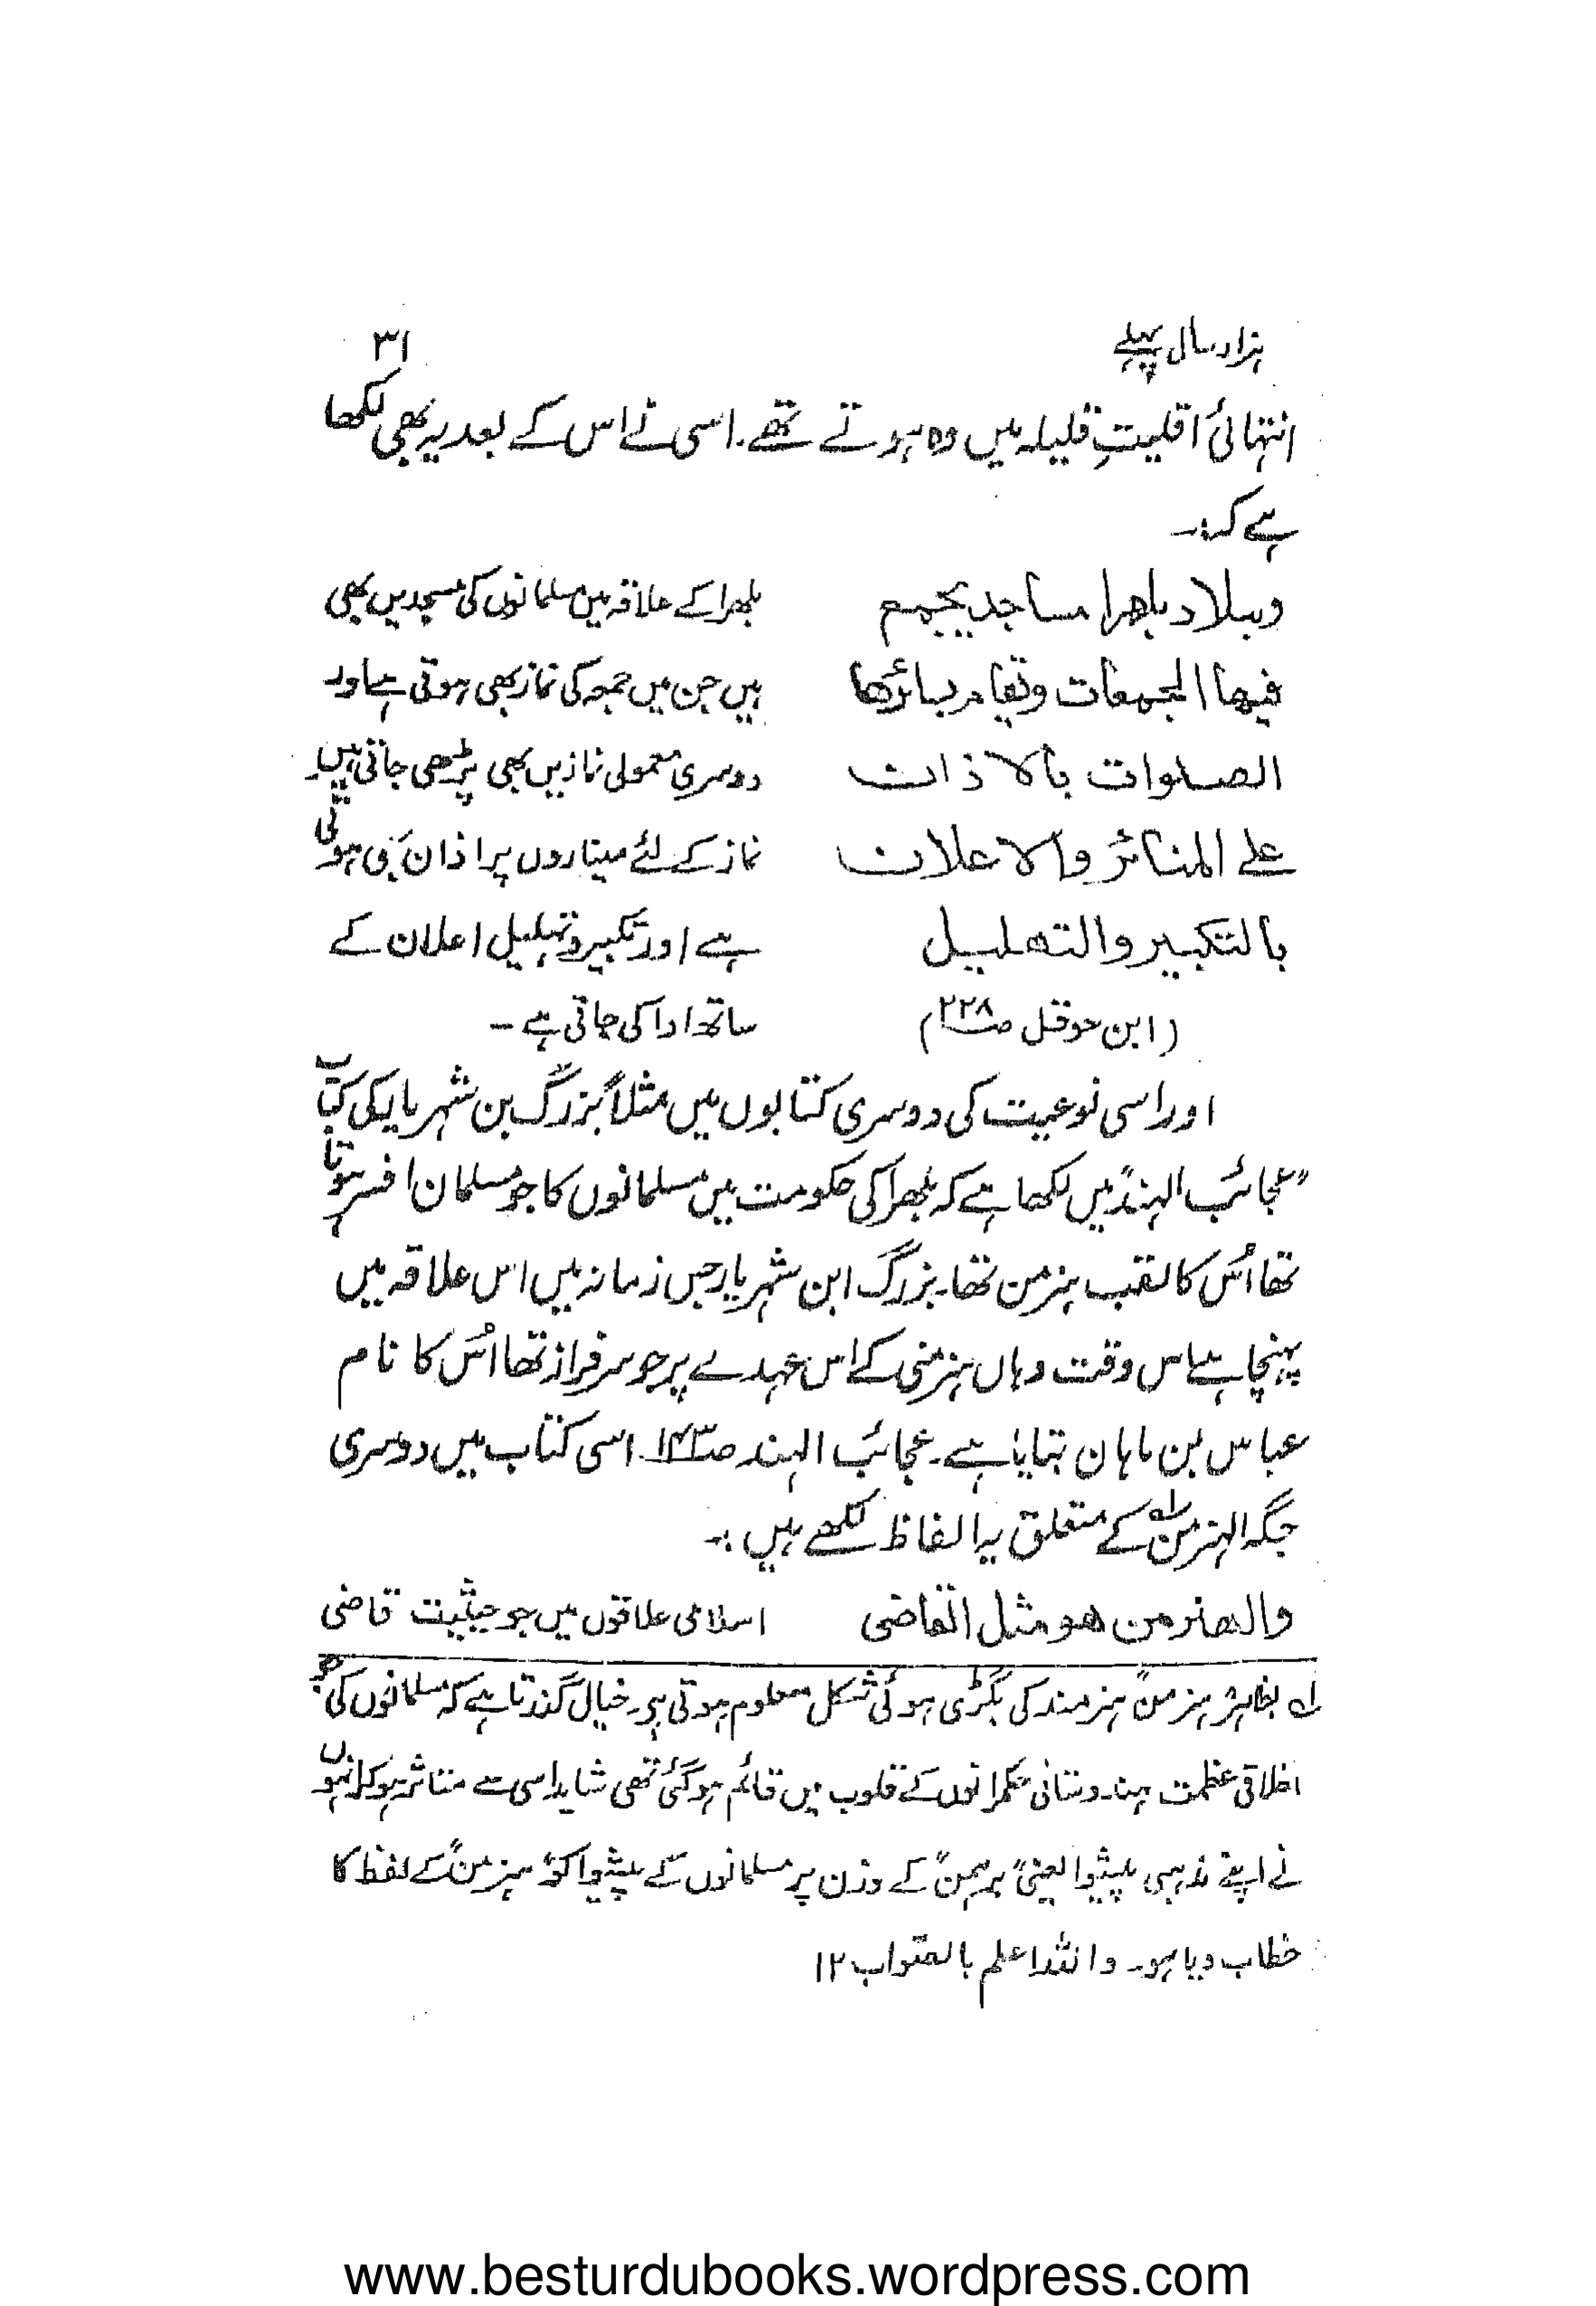 ہزار سال پہلے ۳۱
انتہائی اقلیتِ قلیلہ میں وہ ہوتے تھے۔ اسی نے اس کے بعد یہ بھی لکھا
ہے کہ:۔
وببلاد بلھرا مساجد یجمع بلھرا کے علاقہ میں مسلمانوں کی مسجدیں بھی
فیھا الجمعات وتقام بسائرھا ہیں جن میں جمعہ کی نماز بھی ہوتی ہے اور
الصلوات بالاذان دوسری معمولی نمازیں بھی پڑھی جاتی ہیں۔
علی المنائر والاعلان نماز کے لئے میناروں پر اذان بھی ہوتی
بالتکبیر والتھلیل ہے اور تکبیر و تہلیل اعلان کے
(ابن حوقل ص۲۲۸) ساتھ ادا کی جاتی ہے۔
اور اسی نوعیت کی دوسری کتابوں میں مثلاً بزرگ بن شہریار کی کتاب
"عجائب الہند" میں لکھا ہے کہ بلھرا کی حکومت میں مسلمانوں کا جو مسلمان افسر ہوتا
تھا اُس کا لقب ہنرمن تھا۔ بزرگ ابن شہریار جس زمانہ میں اس علاقہ میں
پہنچا ہے اس وقت وہاں ہنرمنی کے اس عہدے پر جو سرفراز تھا اُس کا نام
عباس بن ماہان بتایا ہے۔ عجائب الہند ص۱۴۳۔ اسی کتاب میں دوسری
جگہ الہنرمن لہ کے متعلق یہ الفاظ لکھے ہیں:۔
والھنرمن ھو مثل القاضی اسلامی علاقوں میں جو حیثیت قاضی
لہ بظاہر ہنرمن" ہنرمند کی بگڑی ہوئی شکل معلوم ہوتی ہے۔ خیال گذرتا ہے کہ مسلمانوں کی جو
اخلاقی عظمت ہندوستانی حکمرانوں کے قلوب میں قائم ہوگئی تھی شاید اسی سے متاثر ہوکر انہوں
نے اپنے مذہبی پیشوا یعنی "برہمن" کے وزن پر مسلمانوں کے پیشوا کو "ہنرمن" کے لفظ کا
خطاب دیا ہو۔ واللہ اعلم بالصواب ۱۲
www.besturdubooks.wordpress.com